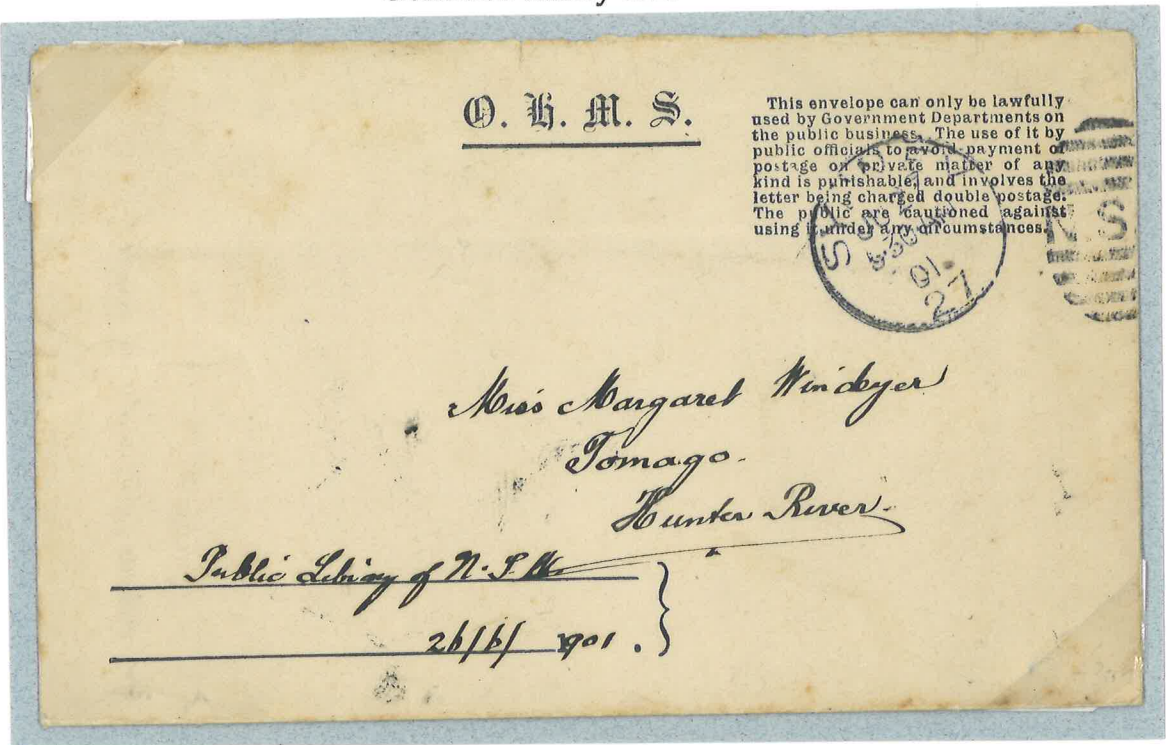 O. H. M. S.
This envelope can only be lawfully
used by Government Departments on
the public business. The use of it by
public officials to avoid payment of
postage on private matter of any
kind is punishable, and involves the
letter being charged double postage.
The public are cautioned against
using it under any circumstances.
SYDNEY
9 30 AM
01
27
N. S.
Miss Margaret Windeyer
Tomago.
Hunter River.
Public Library of N. S. W.
26/6/ 1901.